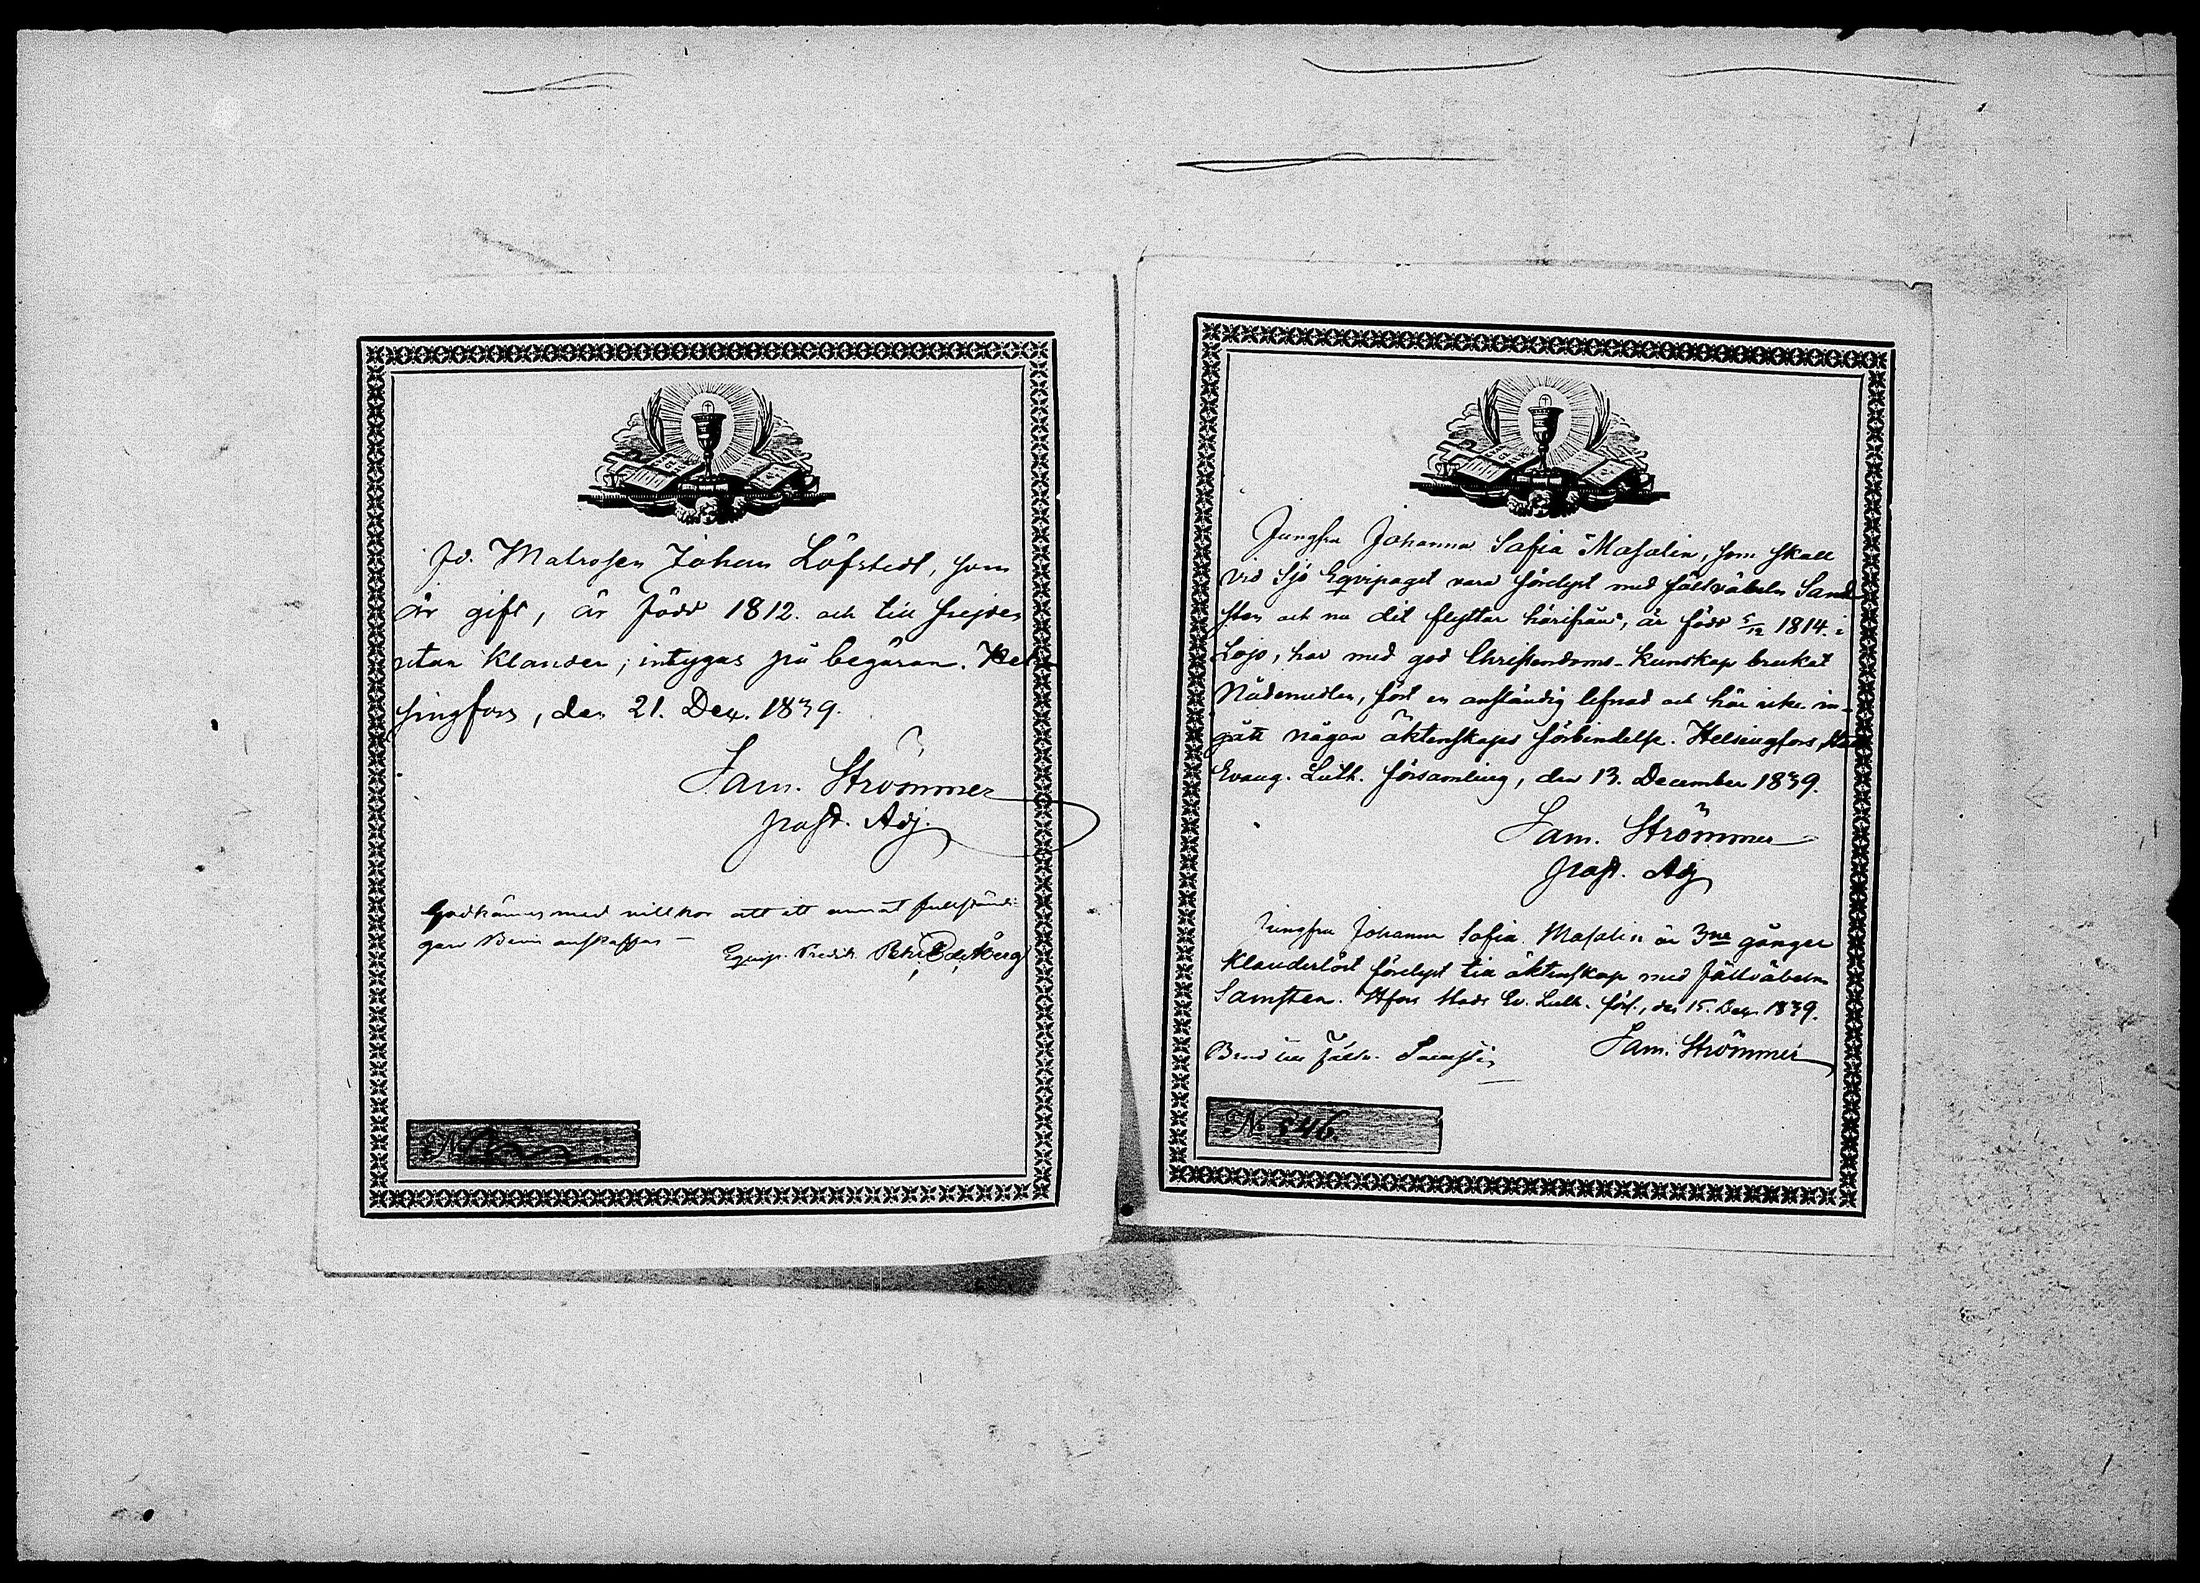 Fd. Matrosen Johan Löfstedt, som
är gift, är född 1812. och till frejden
utan klander; intygas på begäran. Hel-
singfors, den 21. Dec. 1839.
Sam. Strömmer
past. Adj.
Godkännes med villkor att ett annat fullständi-
gare Bevis anskaffas —
Eqvip. Predik.
Jungfru Johanna Sofia Masalin, som skall
vid Sjö Eqvipaget vara förelyst med fältväbeln Sand
sten och nu dit flyttar härifrån, är född 5/12 1814. i
Lojo, har med god Christendoms-kunskap brukat
Nådemedlen, fört en anständig lefnad och här icke in-
gått någon äktenskaps förbindelse. Helsingfors Stads
Evang. Luth. församling, den 13. December 1839.
Sam. Strömmer
past. Adj
Jungfru Johanna Sofia Masalin är 3ne gånger
klanderlöst förelyst till äktenskap med fältväbeln
Samsten. Hfors Stads Ev. Luth. förs., den 15. Dec. 1839.
Sam. Strömmer
No 346.